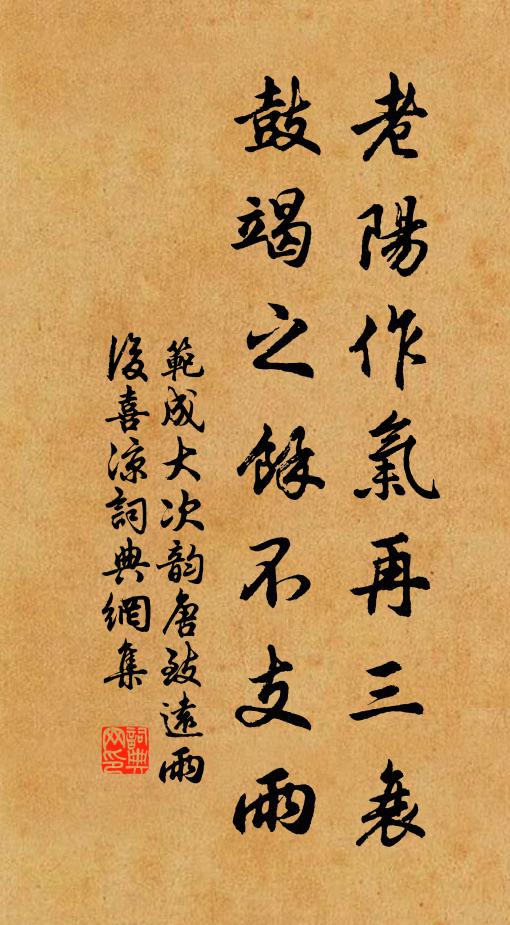 老陽作氣再三衰
鼓竭之餘不支雨
範成大次韵唐致遠雨
後喜涼詞典網集
詞典
网印